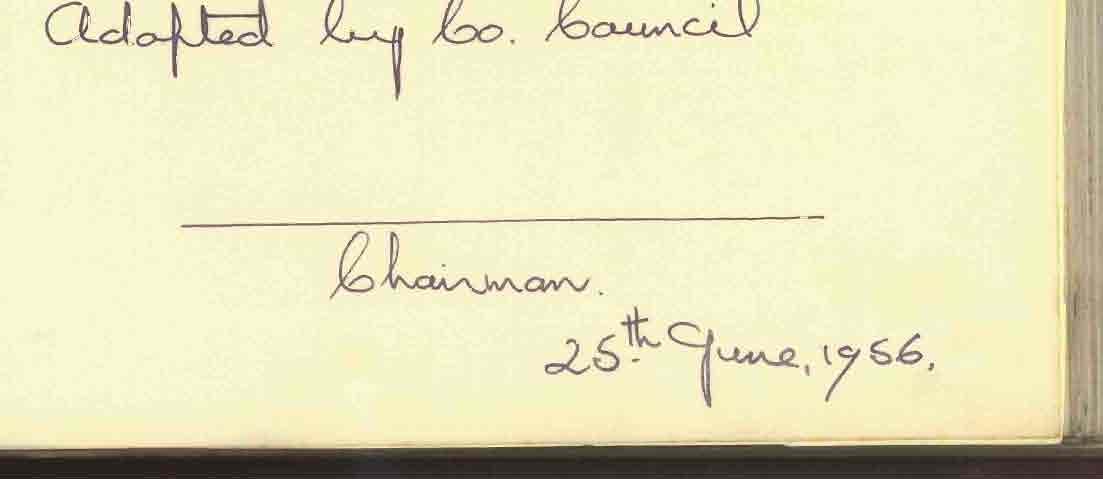 Adopted by Co. Council
Chairman.
25th June, 1956.